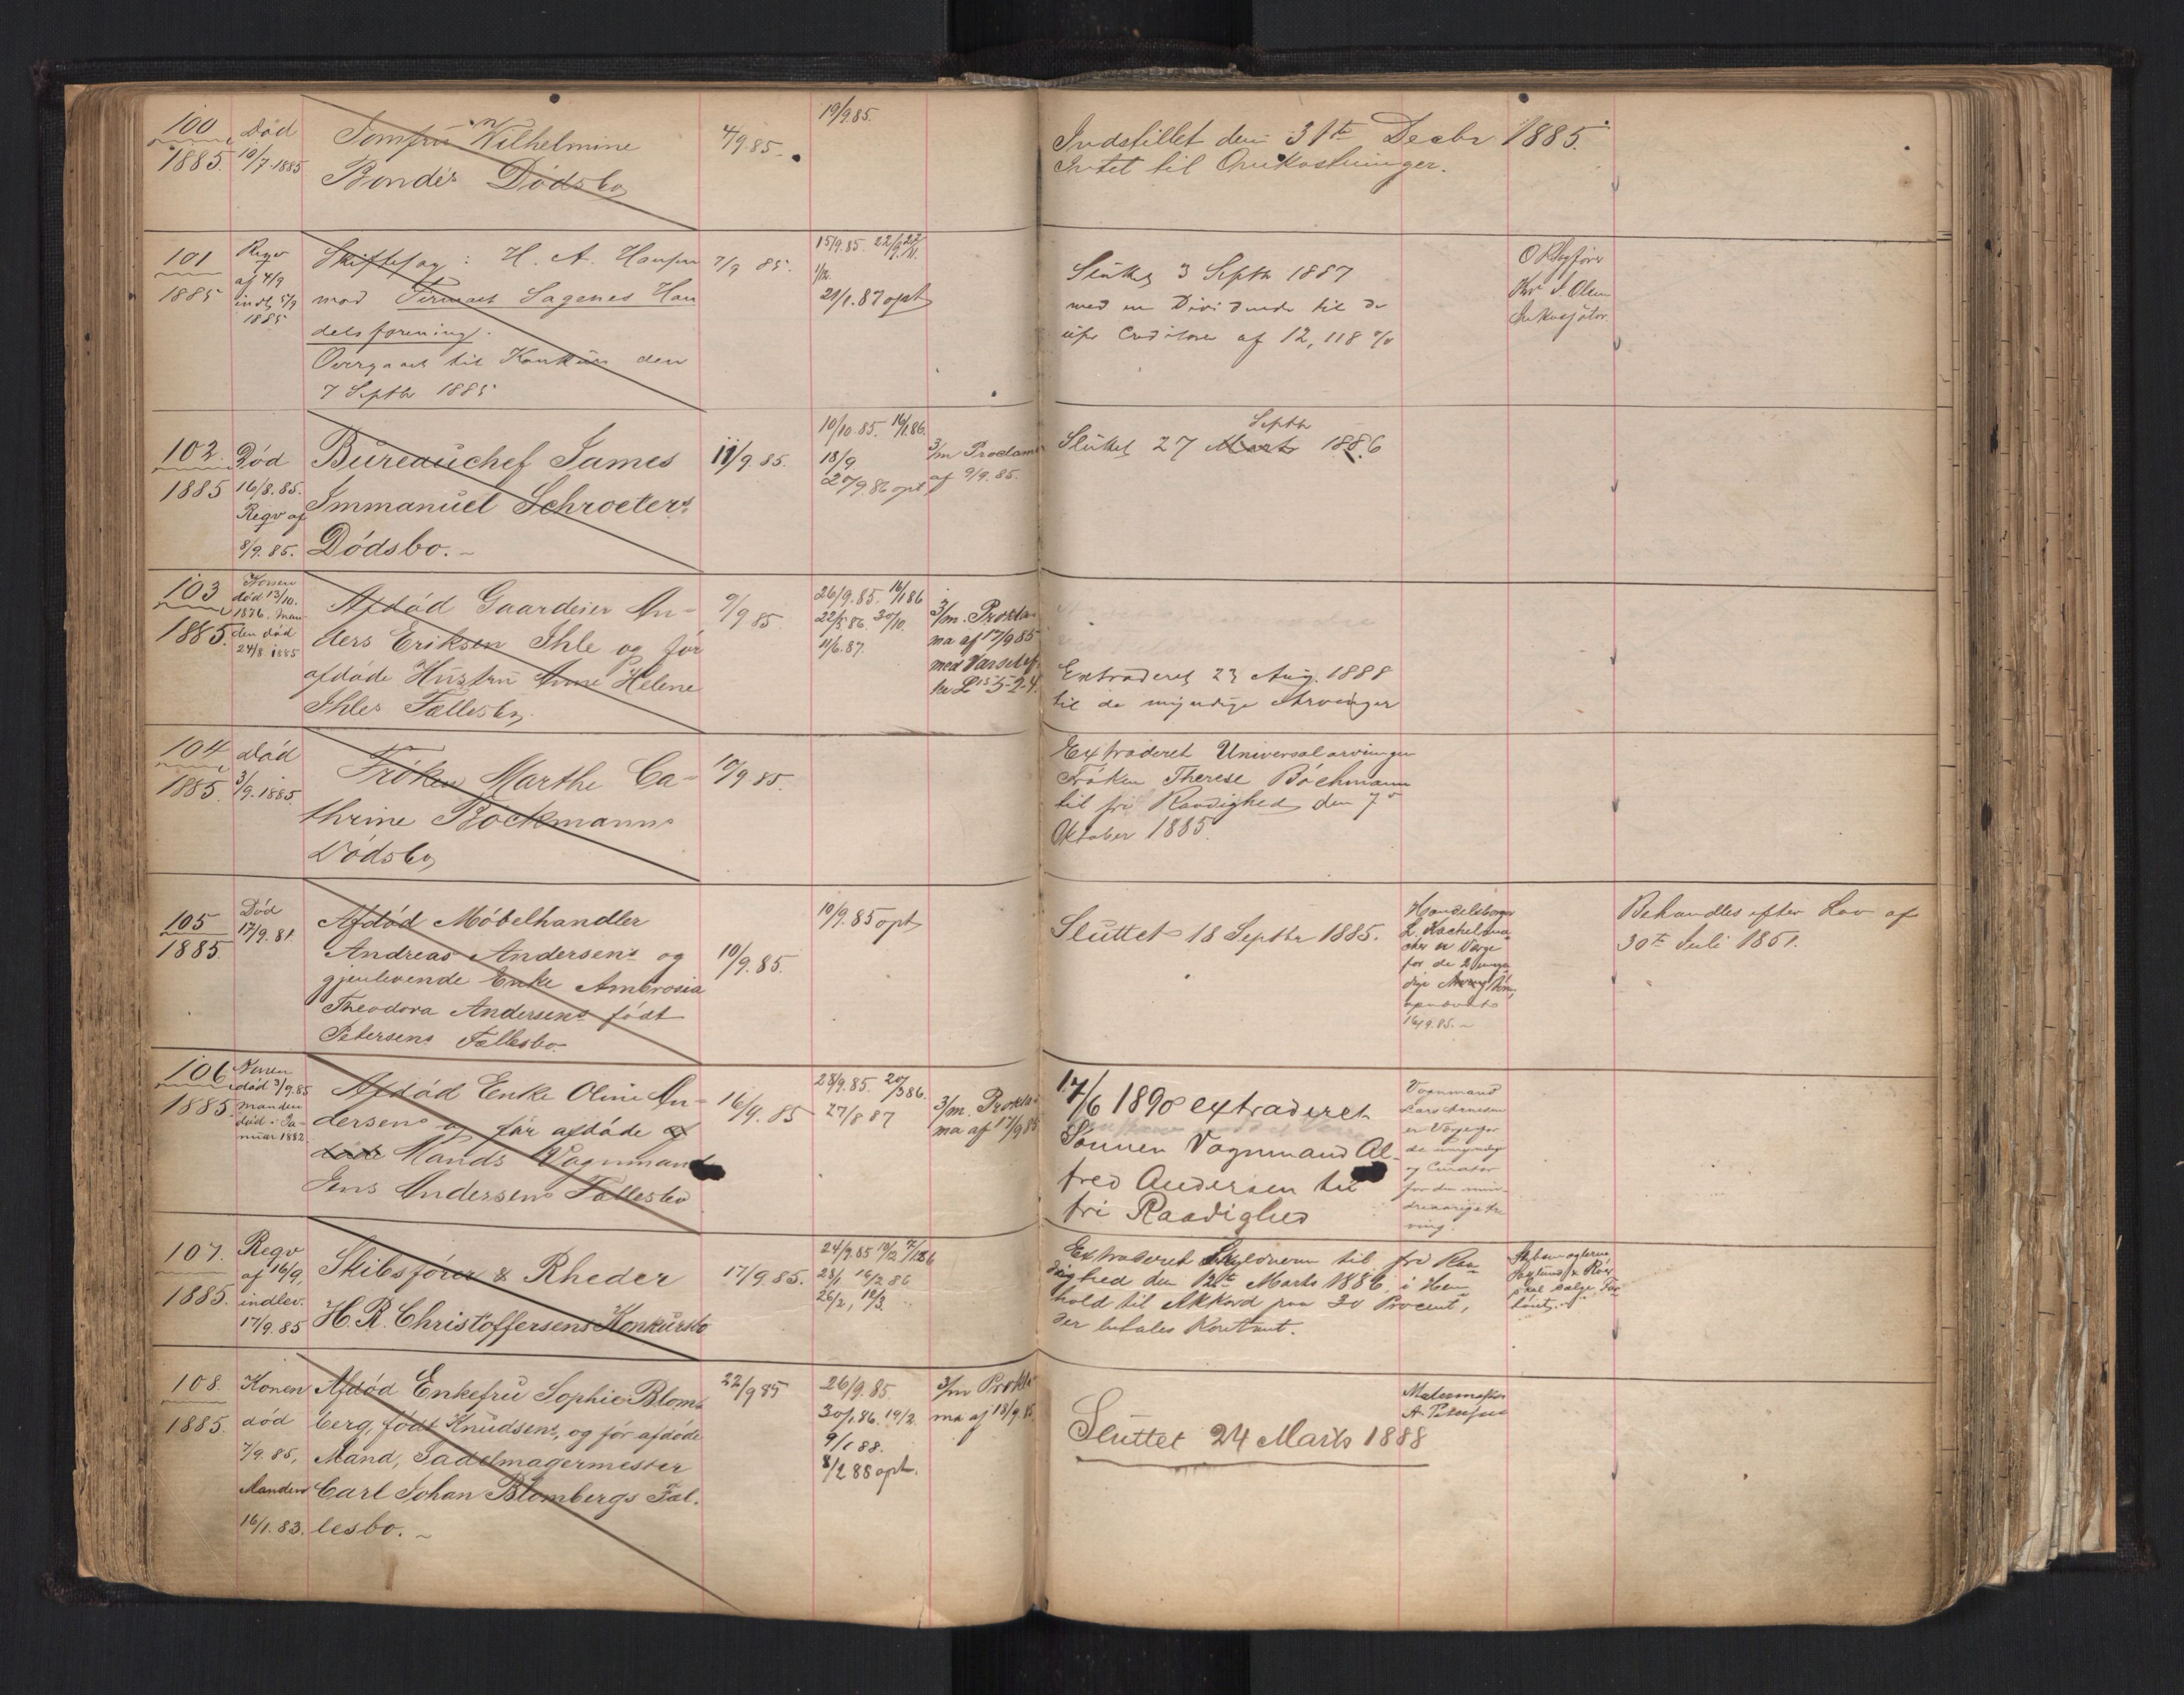 100
1885.
Død
10/7.1885
Jomfru Vilhelmine
Bondis Dødsbo
4/9.85.
19/9.85.
Indstillet den 31te Decbr 1885.
Intet til Omkostninger.
101
1885
Reqv
af 4/9
indl. 5/9
1885
Skiftesag: H. A. Hansen
mod Firmaet Sagenes Han
delsforening.
Overgaaet til Konkurs den
7 Septbr 1885
7/9 85.
15/9.85.
21/1.87 opt
Sluttet 3 Septbr 1887
med en Dividende til de
Creditorer af 12,118 %
O R Sagfører
Olsen
Inkassator
102
1885
Død
16/8.85.
Reqv af
8/9.85.
Bureauchef James
Immanuel Schroeters
Dødsbo.
11/9.85.
10/10.85. 16/1.86.
18/9.
27/9.86 opt
3/m Proclama
af 9/9.85.
Septbr
Sluttet 27 Marts 1886
103
1885.
Konen
død 13/10.
1876. Man
den død
24/8 1885
Afdød Gaardeier An-
ders Eriksen Ihle og før
afdøde Hustru Anne Helene
Ihles Fællesbo.
9/9 85
26/9.85. 16/1 86
22/5 86. 30/10.
11/6.87.
3/m. Prokla-
ma af 17/9 85
med Varsel ef-
ter L 5-2-4.
Extraderet 23 Aug. 1888
til de myndige Arvinger
104
1885
Død
3/9.1885.
Frøken Marthe Ca-
thrine Bøckmanns
Dødsbo
10/9 85.
Extraderet Universalarvingen
Frøken Therese Bøchmann
til fri Raadighed den 7de
Oktober 1885.
105
1885.
Død
17/9.81
Afdød Møbelhandler
Andreas Andersens og
gjenlevende Enke Ambrosia
Theodora Andersens født
Petersens Fællesbo.
10/9.85.
10/9.85 opt
Sluttet 18 Septbr 1885.
Handelsborger
er Værge
for de 2 umyn
dige Børn,
opnævnt
16/9.85.
Behandles efter Lov af
30te Juli 1851.
106
1885
Konen
død 3/9.85
Manden
død i Ja-
nuar 1882
Afdød Enke Oline An-
dersens og før afdøde
Mands Vognmand
Jens Andersens Fællesbo
16/9.85
28/9.85. 20/3 86.
27/8 87
3/m. Prokla-
ma af 17/9 85
17/6 1890 extraderet
Sønnen Vognmand Al-
fred Andersen til
fri Raadighed
Vognmand
Lars Arnesen
er Værge for
de umyndige
og Curator
for den min-
dreaarige Ar-
ving.
107.
1885.
Reqv
af 16/9,
indlev.
17/9.85
Skibsfører & Rheder
H. R. Christoffersens Konkursbo
17/9.85.
24/9.85
26/2,
Extraderet Skyldneren til fri Raa-
dighed den 12te Marts 1886, i Hen-
hold til Akkord paa 30 Procent,
der betales Kontant.
108.
1885.
Konen
død
7/9.85,
Manden
16/1.83.
Afdød Enkefru Sophie Blom-
berg, født Knudsens, og før afdøde
Mand, Sadelmagermester
Carl Johan Blombergs Fæl-
lesbo.
22/9 85
26/9.85.
30/1.86. 19/2.
9/1 88.
8/2 88 opt.
3/m Prokla-
ma af 18/9.85.
Sluttet 24 Marts 1888
Malermester
A. Petersen